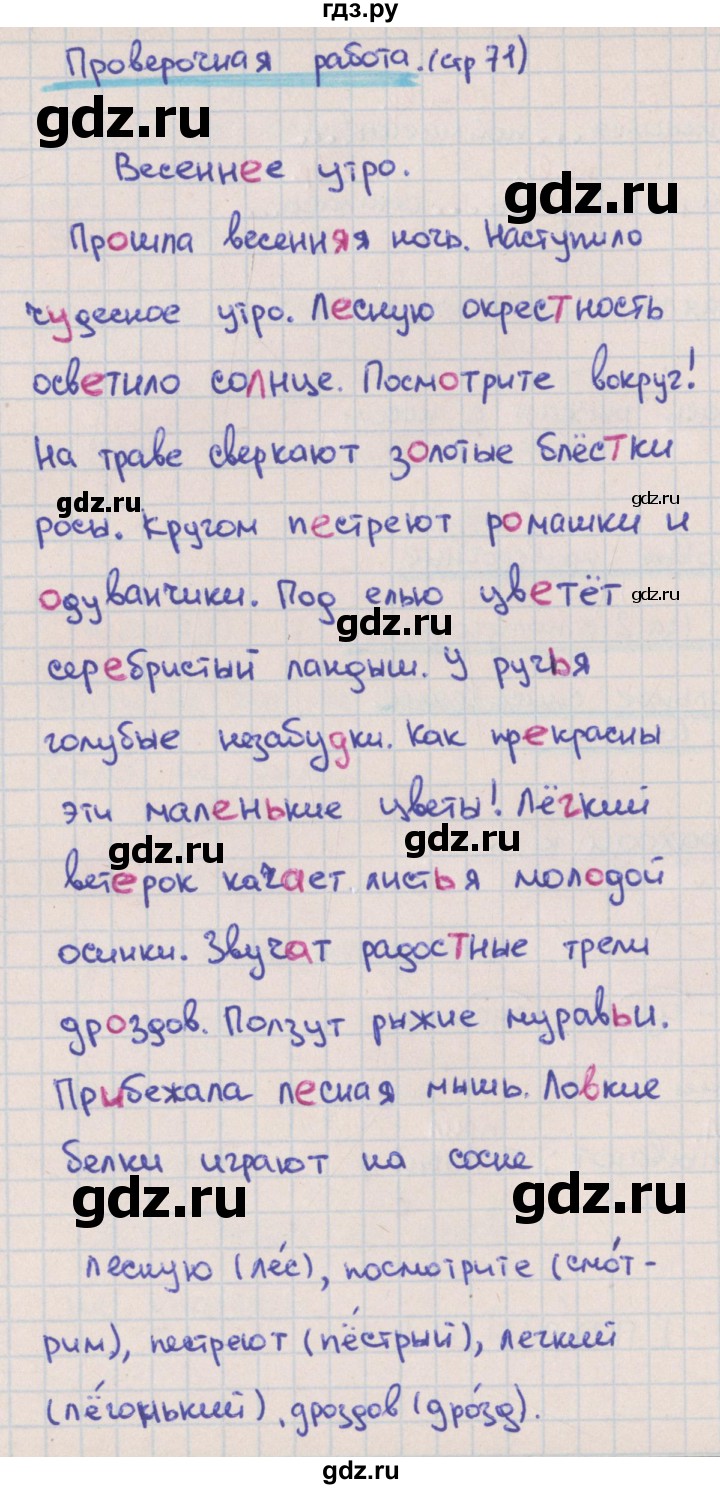 гдз.ру
Проверочная работа. (стр 71)
gdz.ru
Весеннее утро.
gdz.ru
Прошла весенняя ночь. Наступило
чудесное утро. Лесную окрестность
осветило солнце. Посмотрите вокруг!
На траве сверкают золотые блёстки
gdz.ru
gdz.ru
росы. Кругом пестреют ромашки и
одуванчики. Под елью цветёт
gdz.ru
gdz.ru
серебристый ландыш. У ручья
голубые незабудки. Как прекрасны
эти маленькие цветы! Лёгкий
gdz.ru
gdz.ru
ветерок качает листья молодой
осинки. Звучат радостные трели
дроздов. Ползут рыжие муравьи.
Прибежала лесная мышь. Ловкие
белки играют на сосне
gdz.ru
gdz.ru
лесную (ле́с), посмотрите (смо́т-
рим), пестреют (пёстрый), легкий
(лёгонький), дроздов (дро́зд).
gdz.ru